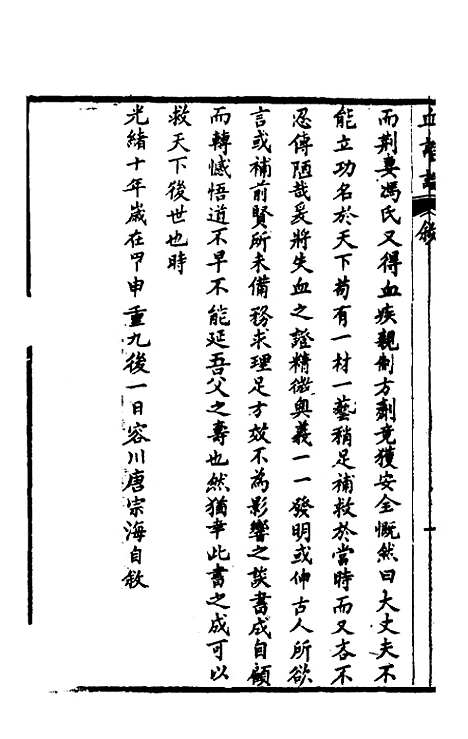 血證論 敘
而荆妻馮氏又得血疾親制方劑竟獲安全慨然曰大丈夫不
能立功名於天下苟有一材一藝稍足補救於當時而又吝不
忍傳陋哉爰將失血之證精微奧義一一發明或伸古人所欲
言或補前賢所未備務求理足方效不為影響之談書成自顧
而轉憾悟道不早不能延吾父之壽也然猶幸此書之成可以
救天下後世也時
光緒十年歲在甲申重九後一日容川唐宗海自敘
一